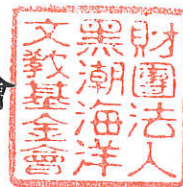 會
財團法人
黑潮海洋
文教基金會